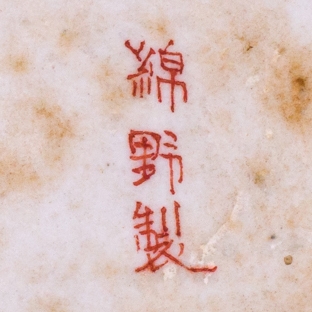 綿野製